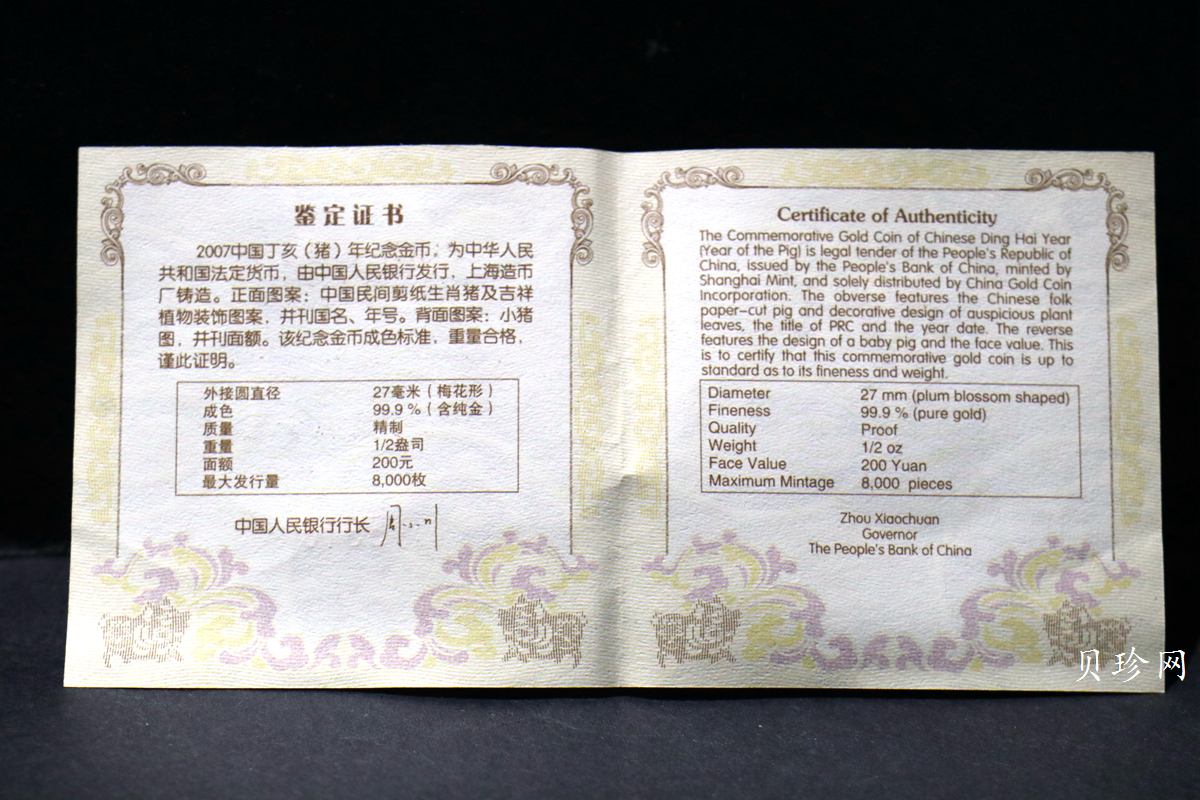 鉴定证书
2007中国丁亥（猪）年纪念金币，为中华人民
共和国法定货币，由中国人民银行发行，上海造币
厂铸造。正面图案：中国民间剪纸生肖猪及吉祥
植物装饰图案，并刊国名、年号。背面图案：小猪
图，并刊面额。该纪念金币成色标准，重量合格，
谨此证明。
外接圆直径 27毫米（梅花形）
成色 99.9％（含纯金）
质量 精制
重量 1/2盎司
面额 200元
最大发行量 8,000枚
中国人民银行行长
Certificate of Authenticity
The Commemorative Gold Coin of Chinese Ding Hai Year
(Year of the Pig) is legal tender of the People's Republic of
China, issued by the People's Bank of China, minted by
Shanghai Mint, and solely distributed by China Gold Coin
Incorporation. The obverse features the Chinese folk
paper-cut pig and decorative design of auspicious plant
leaves, the title of PRC and the year date. The reverse
features the design of a baby pig and the face value. This
is to certify that this commemorative gold coin is up to
standard as to its fineness and weight.
Diameter 27 mm (plum blossom shaped)
Fineness 99.9 % (pure gold)
Quality Proof
Weight 1/2 oz
Face Value 200 Yuan
Maximum Mintage 8,000 pieces
Zhou Xiaochuan
Governor
The People's Bank of China
贝珍网